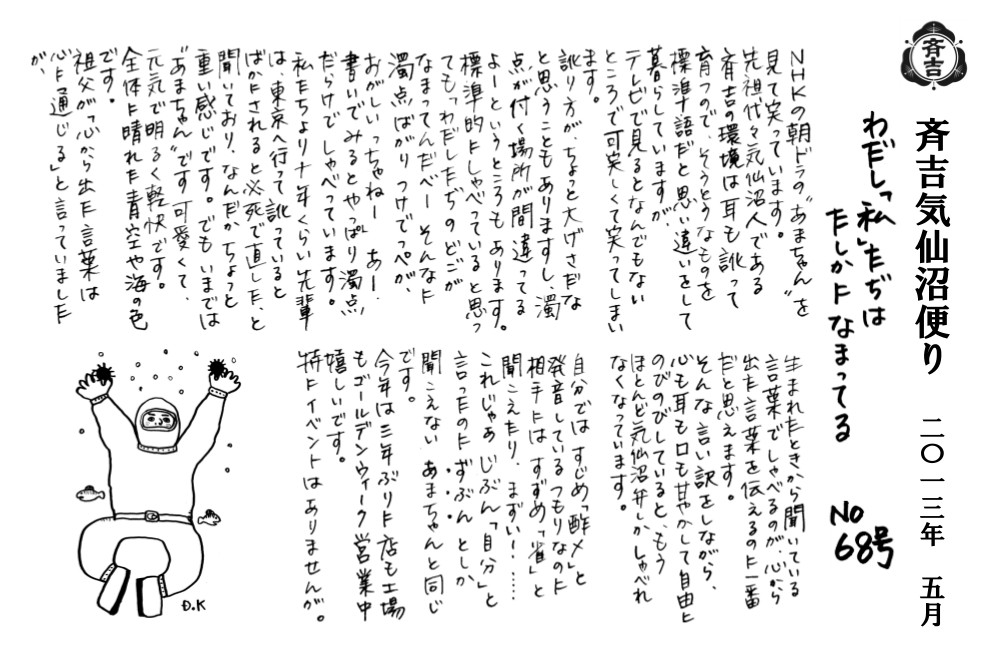 斉吉
斉吉気仙沼便り　二〇一三年　五月
わだしっ「私」たぢは
たしかになまってる
No68号
NHKの朝ドラの“あまちゃん”を
見て笑っています。
先祖代々気仙沼人である
斉吉の環境は耳も訛って
育つので、そうとうなものを
標準語だと思い違いをして
暮らしていますが、
テレビで見るとなんでもない
ところで可笑しくて笑ってしまい
ます。
訛り方が、ちょっと大げさだな
と思うこともありますし、濁
点が付く場所が間違ってる
よーというところもあります。
標準的にしゃべっていると思っ
ても「わだしたぢのどこが
なまってんだべー　そんなに
濁点ばがりつけでっぺが、
おがしいっちゃねー」　あー、
書いでみるとやっぱり濁点
だらけでしゃべっています。
私たちより十年くらい先輩
は、東京へ行って訛っていると
ばかにされると必死で直した、と
聞いており、なんだかちょっと
重い感じです。でもいまでは
“あまちゃん”です。可愛くて、
元気で明るく軽快です。
全体に晴れた青空や海の色
です。
祖父が「心から出た言葉は
心に通じる」と言っていました
が、
生まれたときから聞いている
言葉でしゃべるのが、心から
出た言葉を伝えるのに一番
だと思えます。
そんな言い訳をしながら、
心も耳も口も甘やかして自由に
のびのびしていると、もう
ほとんど気仙沼弁しかしゃべれ
なくなっています。
自分ではすじめ「酢〆」と
発音しているつもりなのに
相手にはすずめ「雀」と
聞こえたり、まずい！……
これじゃあじぶん「自分」と
言ったのにずぶんとしか
聞こえないあまちゃんと同じ
です。
今年は三年ぶりに店も工場
もゴールデンウィーク営業中
嬉しいです。
特にイベントはありませんが。
D.K